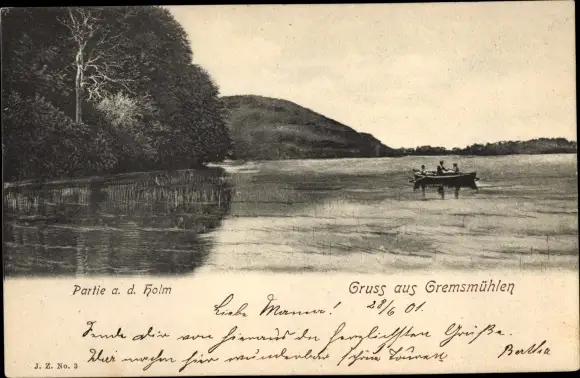 Partie a. d. Holm
Gruss aus Gremsmühlen
Liebe Mama! 28/6 01.
Sende dir von hieraus den herzlichsten Grüße.
machen hier wunderbar schöne Touren
Bertha
J. Z. No. 3